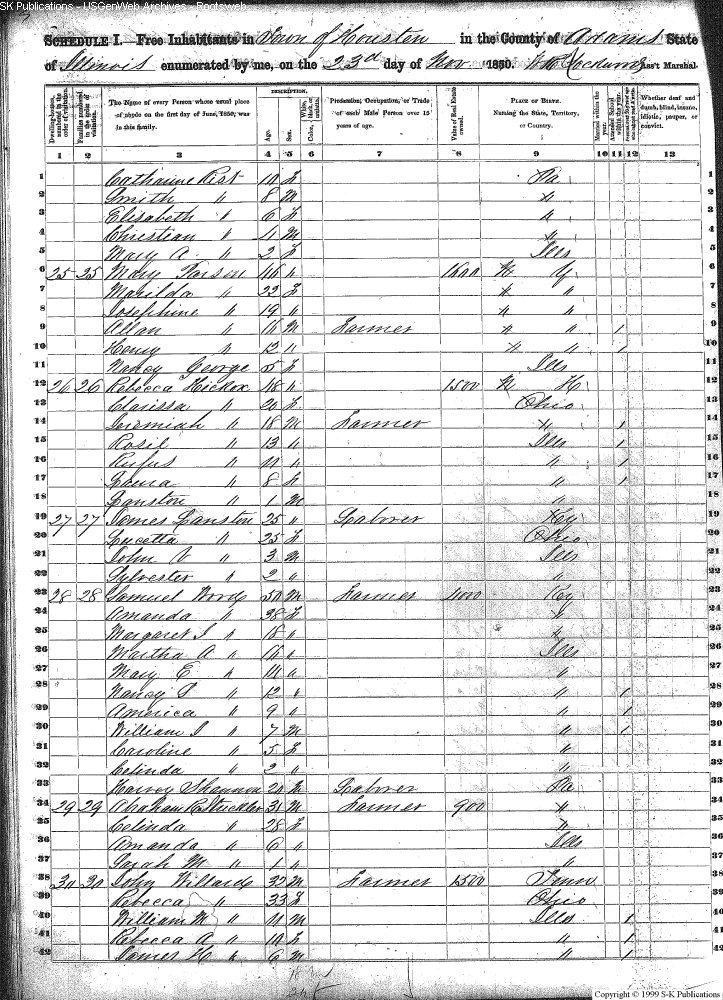 SK Publications - USGenWeb Archives - Rootsweb
SCHEDULE I. Free Inhabitants in Town of Houston in the County of Adams State
of Illinois enumerated by me, on the 23d day of Nov 1850. Ass't Marshal.
Dwelling-houses numbered in the order of visitation. Families numbered in the order of visitation. The Name of every Person whose usual place of abode on the first day of June, 1850, was in this family. DESCRIPTION. Age. Sex. Color, White, black, or mulatto. Profession, Occupation, or Trade of each Male Person over 15 years of age. Value of Real Estate owned. PLACE OF BIRTH. Naming the State, Territory, or Country. Married within the year. Attended School within the year. Whether deaf and dumb, blind, insane, idiotic, pauper, or convict.
1 2 3 4 5 6 7 8 9 10 11 12 13
1 Catharine 10 F Pa 1
2 Smith " 8 M " 2
3 Elisabeth " 6 F " 3
4 Christian " 4 M " 4
5 Mary A. " 2 F Ills 5
6 25 25 Mary Parson 46 " 1600 N Y 6
7 Matilda " 22 F " " 7
8 Josephine " 19 " " " 8
9 Allan " 16 M Farmer " " 1 9
10 Henry " 12 " " " 1 10
11 Nancy George 5 F Ills 11
12 26 26 Rebecca Hickox 48 " 1500 N H 12
13 Clarissa " 20 F Ohio 13
14 Jeremiah " 18 M Farmer " 1 14
15 " 13 " Ills 1 15
16 Rufus " 11 " " 1 16
17 " 8 F " 1 17
18 Lanston " 1 M " 18
19 27 27 James Lanston 25 " Laborer Key 19
20 Lucetta " 25 F Ohio 20
21 John V " 3 M Ills 21
22 Sylvester " 2 " " 22
23 28 28 Samuel Woods 50 M Farmer Key 23
24 Amanda " 38 F " 24
25 Margaret J " 18 " " 25
26 Martha A " 16 " Ills 26
27 Mary E " 14 " " 27
28 Nancy P " 12 " " 1 28
29 America " 9 " " 1 29
30 William J " 7 M " 1 30
31 Caroline " 5 F " 31
32 Celinda " 2 " " 32
33 Harvey Shannon 20 M Laborer Pa 33
34 29 29 Abraham 31 M Farmer 900 " 34
35 Celinda " 28 F " 35
36 Amanda " 6 " Ills 36
37 Sarah M " 1 " " 37
38 30 30 John Willard 32 M Farmer 1500 Tenn 38
39 Rebecca " 33 F Ohio 39
40 William M " 11 M Ills 1 40
41 Rebecca A " 10 F " 1 41
42 James H " 6 M " 1 42
Copyright © 1999 S-K Publications